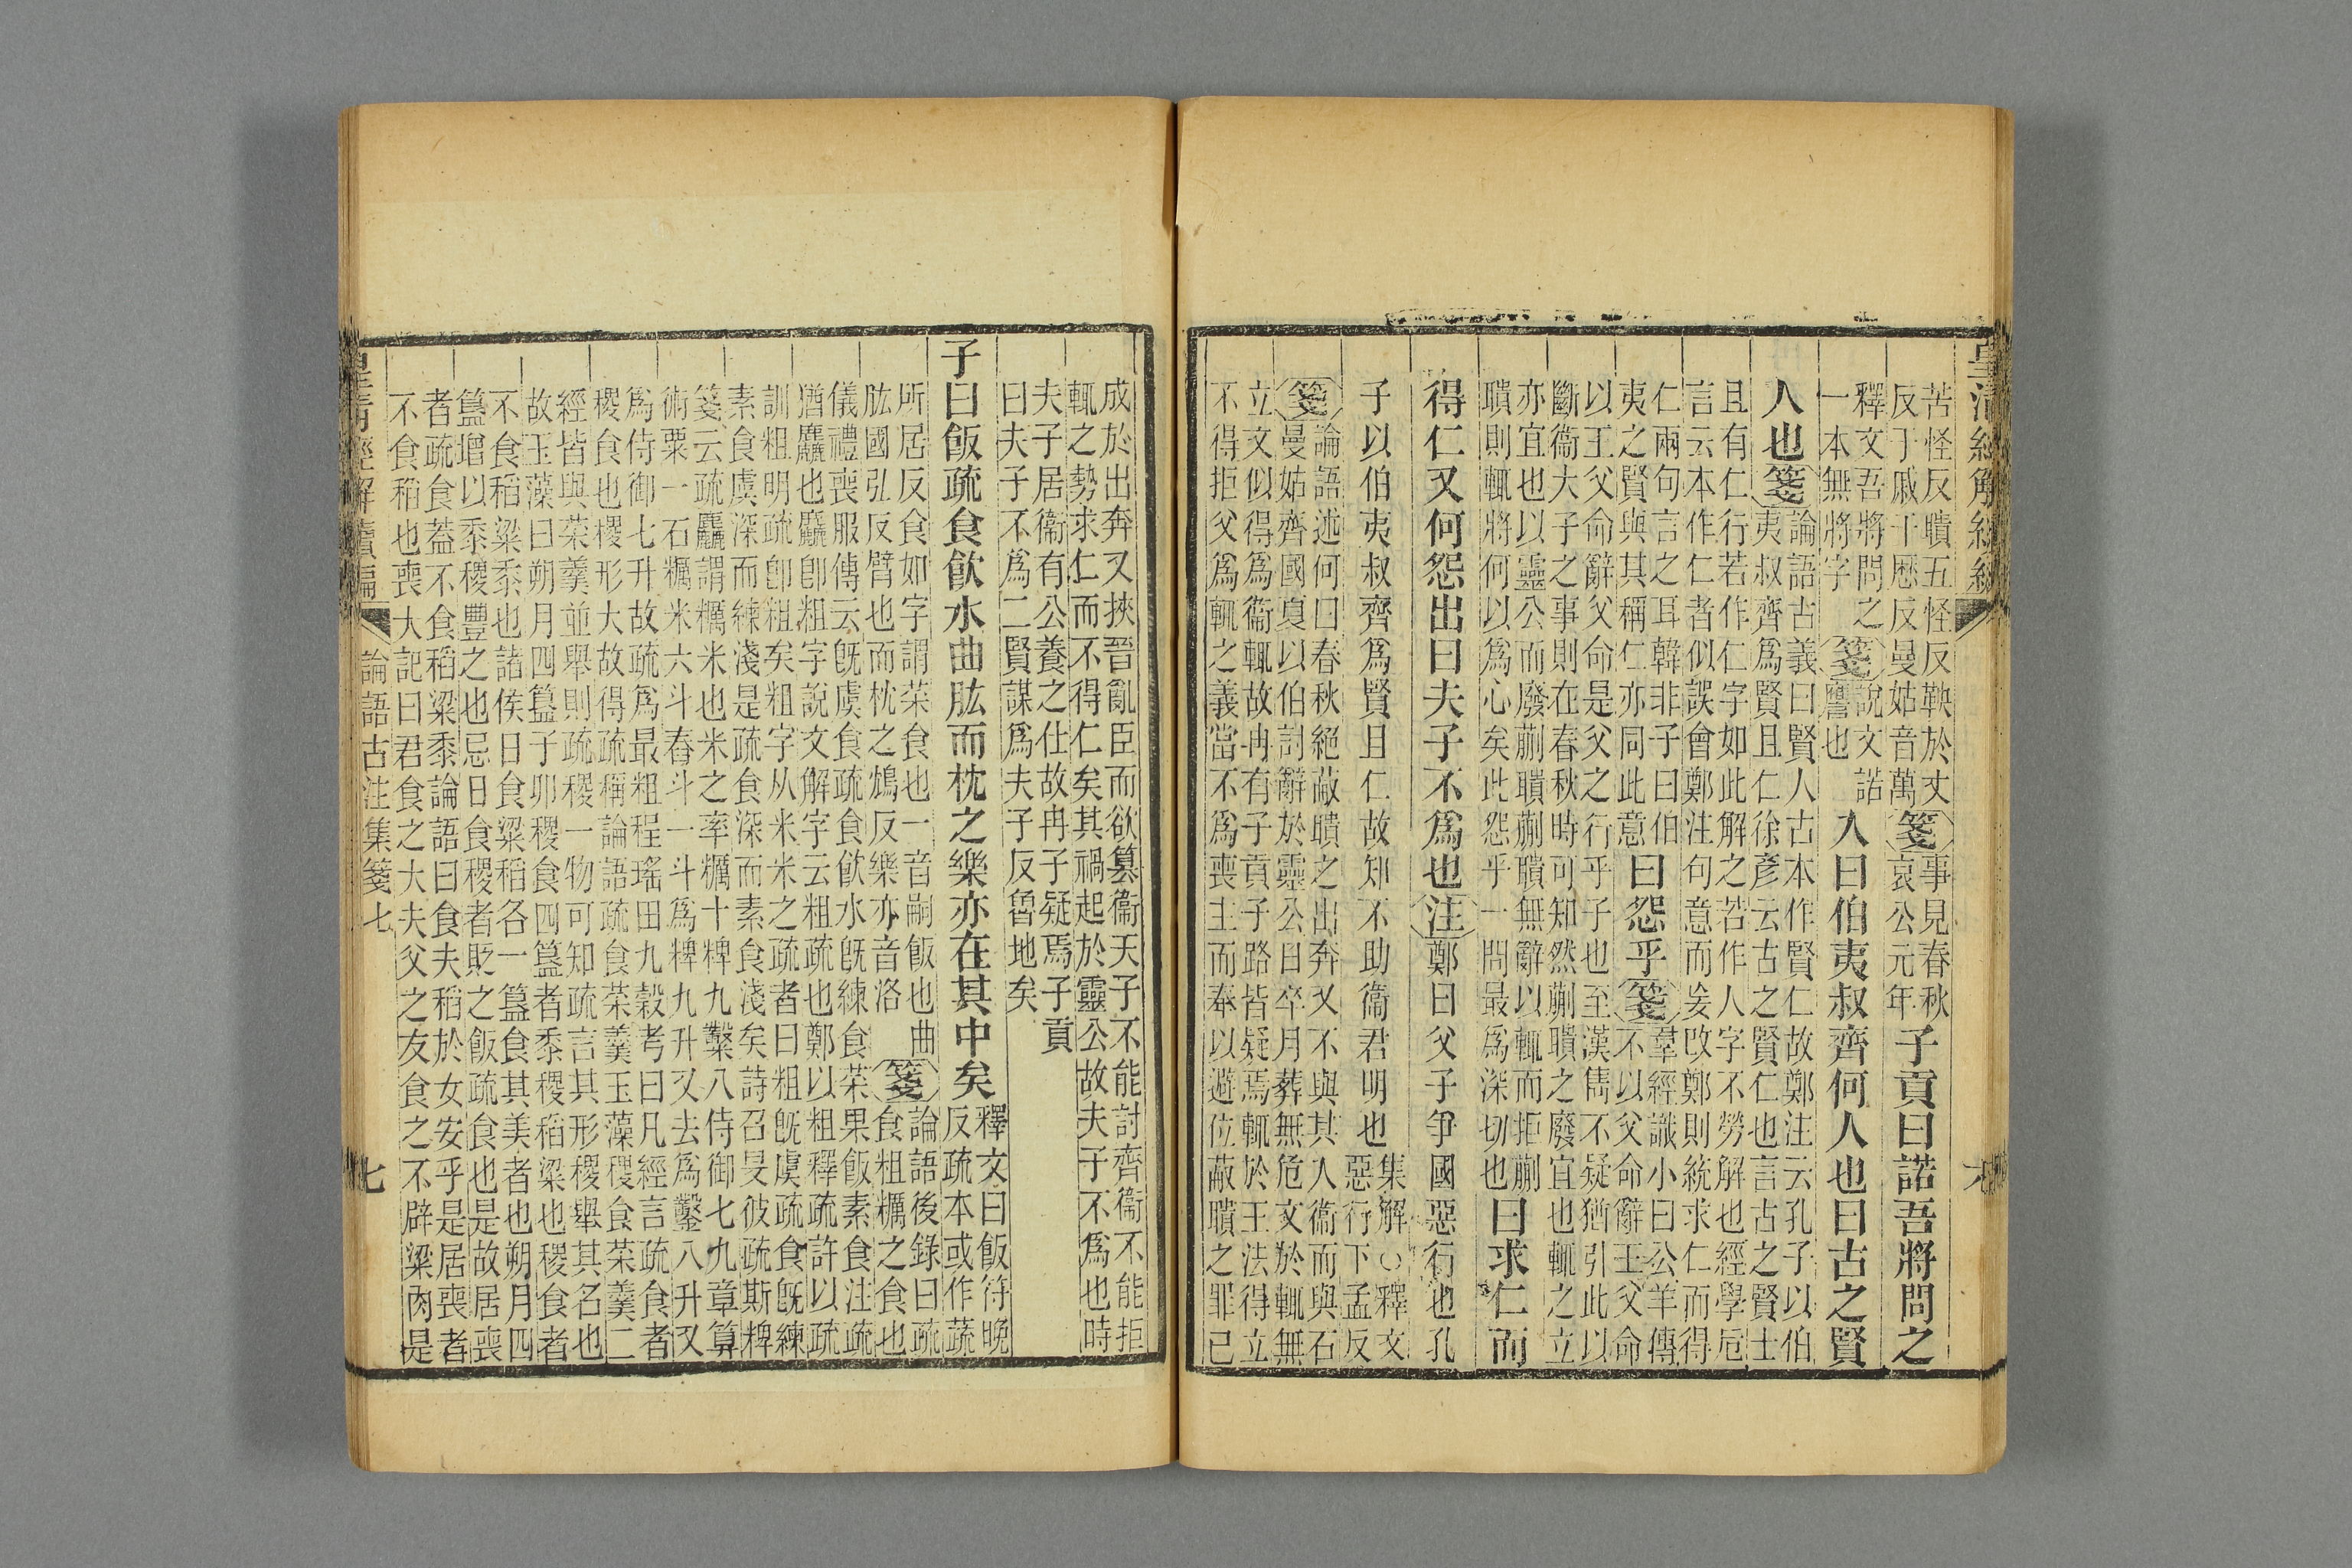 皇清經解續編 六
苦怪反聵五怪反鞅於丈
反于戚千歷反曼姑音萬
箋
事見春秋
哀公元年
子貢曰諾吾將問之
釋文吾將問之
一本無將字
箋
說文諾
譍也
入曰伯夷叔齊何人也曰古之賢
人也箋
論語古義曰賢人古本作賢仁故鄭注云孔子以伯
夷叔齊爲賢且仁徐彥云古之賢仁也言古之賢士
且有仁行若作仁字如此解之若作人字不勞解也經學卮
言云本作仁者似誤會鄭注句意而妄改鄭則統求仁而得
仁兩句言之耳韓非子曰伯
夷之賢與其稱仁亦同此意
曰怨乎箋
羣經識小曰公羊傳
不以父命辭王父命
以王父命辭父命是父之行乎子也至漢雋不疑猶引此以
斷衞大子之事則在春秋時可知然蒯聵之廢宜也輒之立
亦宜也以靈公而廢蒯聵蒯聵無辭以輒而拒蒯
聵則輒將何以爲心矣此怨乎一問最爲深切也
曰求仁而
得仁又何怨出曰夫子不爲也注鄭曰父子爭國惡行也孔
子以伯夷叔齊爲賢且仁故知不助衞君明也
集解○釋文
惡行下孟反
箋
論語述何曰春秋絕蒯聵之出奔又不與其入衞而與石
曼姑齊國夏以伯討辭於靈公日卒月葬無危文於輒無
立文似得爲衞輒故冉有子貢子路皆疑焉輒於王法得立
不得拒父爲輒之義當不爲喪主而奉以避位蒯聵之罪已
成於出奔又挾晉亂臣而欲篡衞天子不能討齊衞不能拒
輒之勢求仁而不得仁矣其禍起於靈公故夫子不爲也時
夫子居衞有公養之仕故冉子疑焉子貢
曰夫子不爲二賢謀爲夫子反魯地矣
子曰飯疏食飲水曲肱而枕之樂亦在其中矣
釋文曰飯符晚
反疏本或作蔬
所居反食如字謂菜食也一音嗣飯也曲
肱國弘反臂也而枕之鴆反樂亦音洛
箋
論語後錄曰疏
食粗糲之食也
儀禮喪服傳云旣虞食疏食飲水旣練食菜果飯素食注疏
猶麤也麤卽粗字說文解字云粗疏也鄭以粗釋疏許以疏
訓粗明疏卽粗矣粗字从米米之疏者曰粗旣虞疏食旣練
素食虞深而練淺是疏食深而素食淺矣詩召旻彼疏斯粺
箋云疏麤謂糲米也米之率糲十粺九鑿八侍御七九章算
術粟一石糲米六斗舂斗一斗爲粺九升又去爲鑿八升又
爲侍御七升故疏爲最粗程瑤田九穀考曰凡經言疏食者
稷食也稷形大故得疏稱論語疏食菜羹玉藻稷食菜羹二
經皆與菜羹並舉則疏稷一物可知疏言其形稷舉其名也
故玉藻曰朔月四簋子卯稷食四簋者黍稷稻粱也稷食者
不食稻粱黍也諸侯日食粱稻各一簋食其美者也朔月四
簋增以黍稷豐之也忌日食稷者貶之飯疏食也是故居喪
者疏食蓋不食稻粱黍論語曰食夫稻於女安乎是居喪者
不食稻也喪大記曰君食之大夫父之友食之不辟粱肉是
皇清經解續編 論語古注集箋七 七